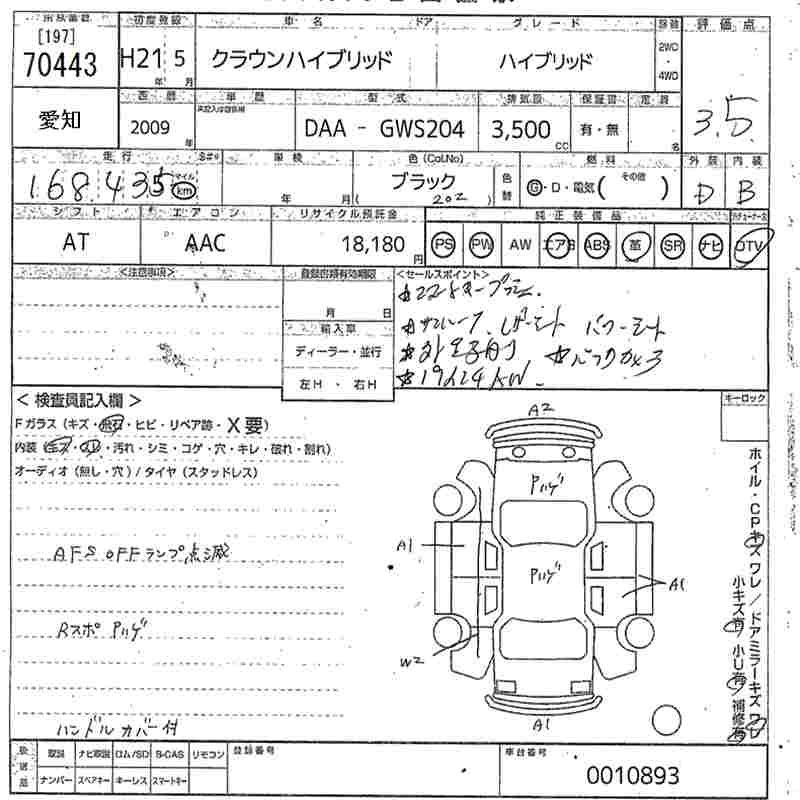 初度登録 車名 ドア グレード 評価点
[197]
70443 H21 5 クラウンハイブリッド ハイブリッド 2WD・4WD
年 月
愛知 西暦 車歴 型式 排気量 保証書 定員 3.5
2009 年 DAA - GWS204 3,500 CC 有・無 名
走行 車検 色(Col.No) 燃料 外装 内装
168,435 マイル km 年 月 ブラック 202 色替 G・D・電気( その他 ) D B
シフト エアコン リサイクル預託金 純正装備品
AT AAC 18,180 円 PS PW AW エアB ABS 革 SR ナビ DTV
<注意事項> 登録書類有効期限 <セールスポイント>
月 日
輸入車
ディーラー・並行
左H ・ 右H
☆サンルーフ レザーシート パワーシート
☆バックカメラ
<検査員記入欄> キーロック
Fガラス(キズ・飛石・ヒビ・リペア跡・X要)
内装(キズ・スレ・汚れ・シミ・コゲ・穴・キレ・破れ・割れ)
オーディオ(無し・穴)/タイヤ(スタッドレス)
AFS OFFランプ点滅
Rスポ Pハゲ
ハンドルカバー付
A2
Pハゲ
A1
Pハゲ
A1
W2
A1
ホイル・CPキズ ワレ/ドアミラーキズ ワレ
小キズ有 小U有 補修有
取説 ナビ取説 ロム/SD B-CAS リモコン 登録番号 車台番号
ナンバー スペアキー キーレス スマートキー 0010893